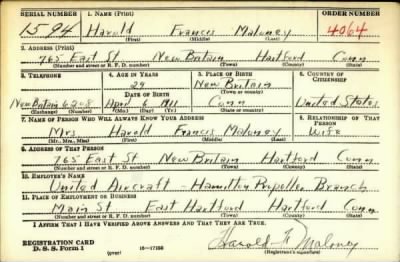 SERIAL NUMBER 1. NAME (Print) ORDER NUMBER
1594 Harold Francis Maloney 4064
(First) (Middle) (Last)
2. ADDRESS (Print)
765 East St New Britain Hartford Conn
(Number and street or R. F. D. number) (Town) (County) (State)
3. TELEPHONE 4. AGE IN YEARS 5. PLACE OF BIRTH 6. COUNTRY OF CITIZENSHIP
29 New Britain
DATE OF BIRTH (Town or county)
New Britain 6208 April 6 1911 Conn United States
(Exchange) (Number) (Mo.) (Day) (Yr.) (State or country)
7. NAME OF PERSON WHO WILL ALWAYS KNOW YOUR ADDRESS 8. RELATIONSHIP OF THAT PERSON
Mrs Harold Francis Maloney Wife
(Mr., Mrs., Miss) (First) (Middle) (Last)
9. ADDRESS OF THAT PERSON
765 East St New Britain Hartford Conn
(Number and street or R. F. D. number) (Town) (County) (State)
10. EMPLOYER'S NAME
United Aircraft - Hamilton Propeller Branch
11. PLACE OF EMPLOYMENT OR BUSINESS
Main St East Hartford Hartford Conn
(Number and street or R. F. D. number) (Town) (County) (State)
I AFFIRM THAT I HAVE VERIFIED ABOVE ANSWERS AND THAT THEY ARE TRUE.
REGISTRATION CARD
D. S. S. Form 1 (over) 16-17105 Harold F. Maloney
(Registrant's signature)